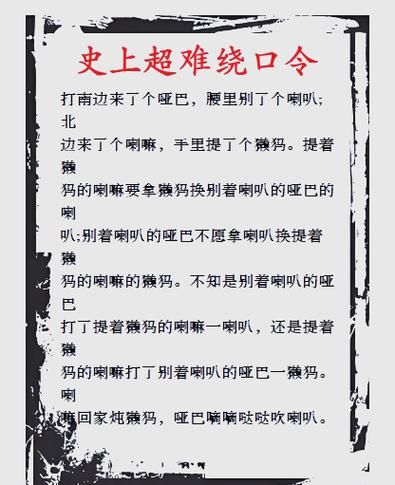 史上超难绕口令
打南边来了个哑巴，腰里别了个喇叭;
北
边来了个喇嘛，手里提了个獭犸。提着
獭
犸的喇嘛要拿獭犸换别着喇叭的哑巴的
喇
叭;别着喇叭的哑巴不愿拿喇叭换提着
獭
犸的喇嘛的獭犸。不知是别着喇叭的哑
巴
打了提着獭犸的喇嘛一喇叭，还是提着
獭
犸的喇嘛打了别着喇叭的哑巴一獭犸。
喇
嘛回家炖獭犸，哑巴嘀嘀哒哒吹喇叭。